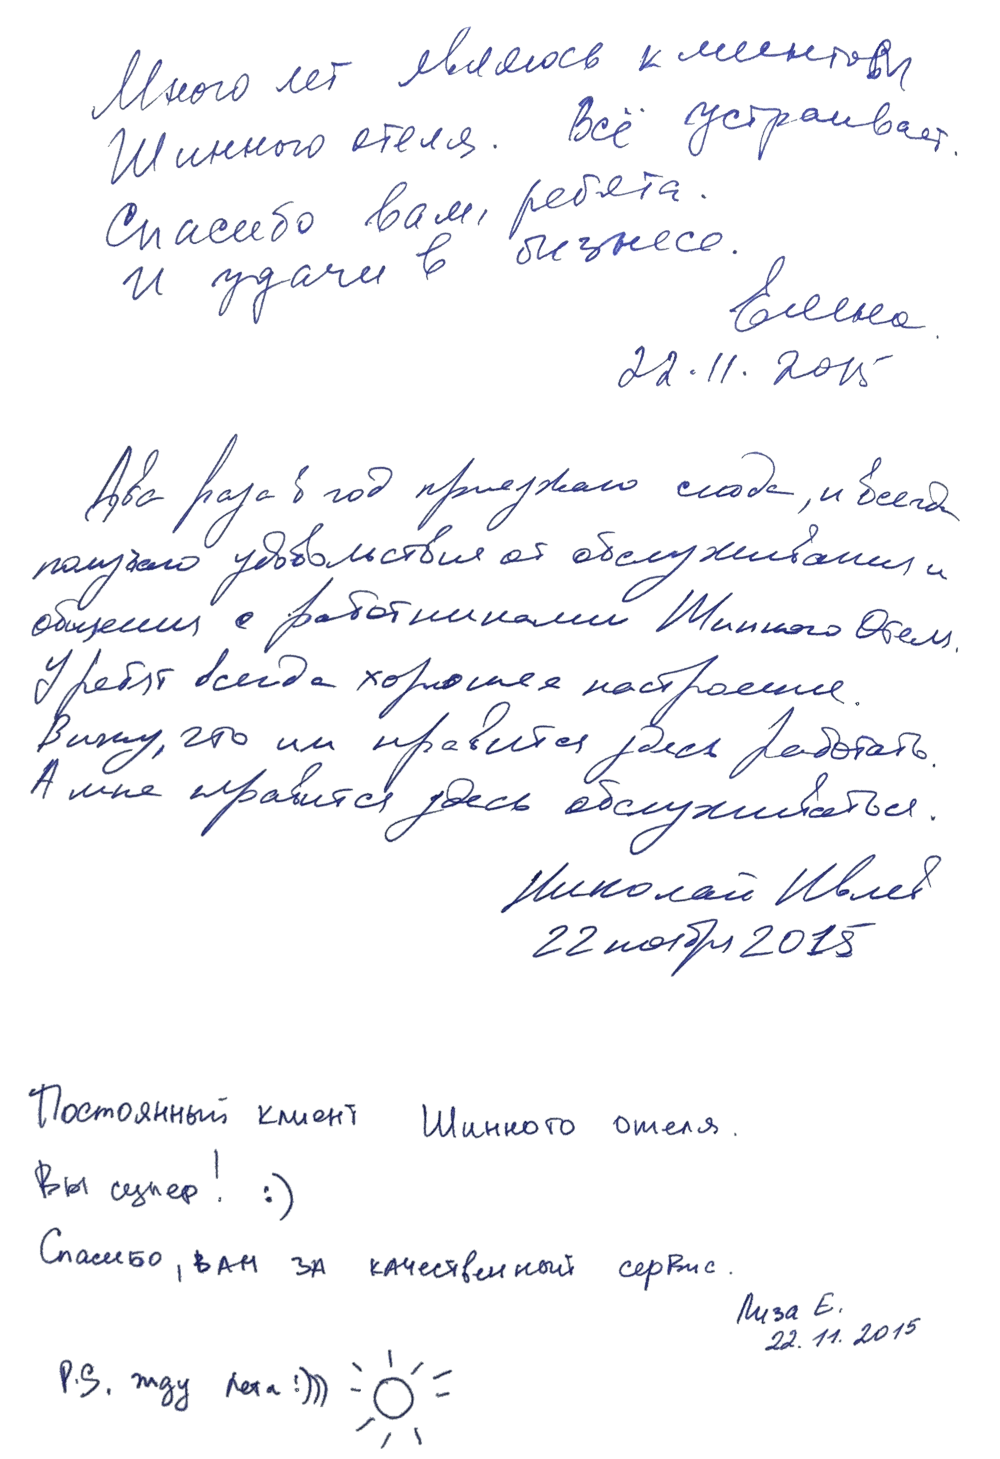 Много лет являюсь клиентом
Шинного отеля. Всё устраивает.
Спасибо вам, ребята.
И удачи в бизнесе.
Елена.
22.11.2015
Два раза в год приезжаю сюда, и всегда
получаю удовольствие от обслуживания и
общения с работниками Шинного Отеля.
У ребят всегда хорошее настроение.
Вижу, что им нравится здесь работать.
А мне нравится здесь обслуживаться.
Николай Ивлев
22 ноября 2015
Постоянный клиент Шинного отеля.
Вы супер! :)
Спасибо, вам за качественный сервис.
Лиза Е.
22.11.2015
P.S. жду лета!)))